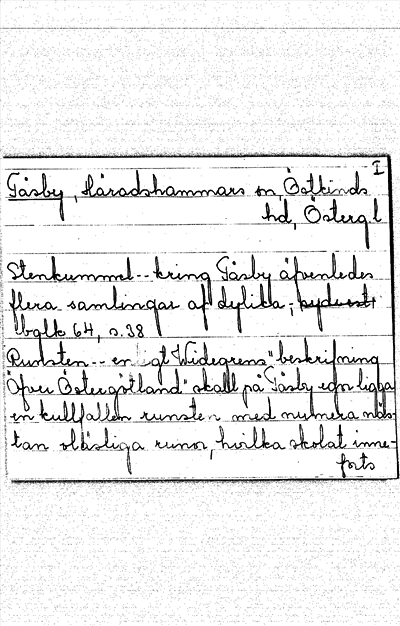 I
Tåsby, Häradshammars sn Östkinds
hd, Östergl
Stenkummel -- kring Tåsby äfvenledes
flera samlingar af dylika; sydvest
balk 64, s. 38
Runsten -- enligt Widegrens "beskrifning
öfver Östergötland" skall på Tåsby egor ligga
en kullfallen runsten med numera näs-
tan oläsliga runor, hvilka skolat inne-
forts